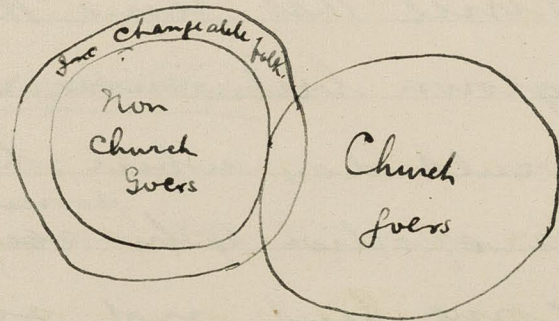 changeable folk.
Non
Church
Goers
Church
goers